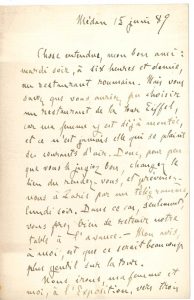 Médan 15 juin 89
Chose entendue, mon bon ami :
mardi soir, à six heures et demie,
au restaurant roumain. Mais vous
savez que vous auriez pu choisir
un restaurant de la tour Eiffel,
car ma femme y est déjà montée,
et ce n'est jamais elle qui se plaint
des courants d'air. Donc, pour peu
que vous le jugiez bon, changez le
lieu du rendez-vous, et prévenez-
nous à Paris par un télégramme
lundi soir. Dans ce cas, seulement,
vous ferez bien de retenir notre
table à l'avance. Mon avis,
à moi, est que ce serait beaucoup
plus gentil sur la tour.
Nous irons, ma femme et
moi, à l'Exposition, vers trois